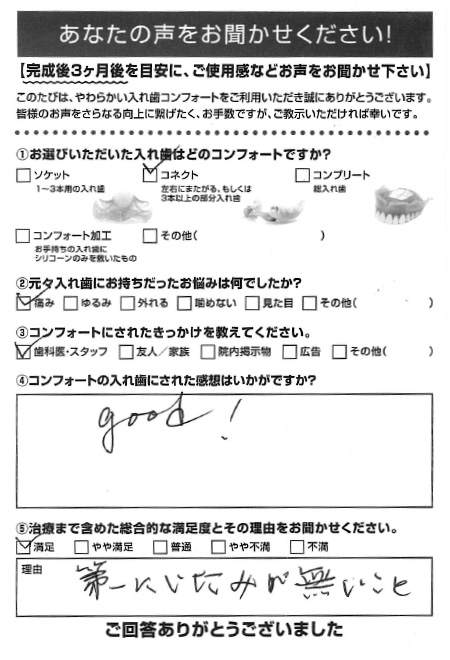 あなたの声をお聞かせください!
【完成後3ヶ月後を目安に、ご使用感などお声をお聞かせ下さい】
このたびは、やわらかい入れ歯コンフォートをご利用いただき誠にありがとうございます。
皆様のお声をさらなる向上に繋げたく、お手数ですが、ご教示いただければ幸いです。
①お選びいただいた入れ歯はどのコンフォートですか?
ソケット
1〜3本用の入れ歯
コネクト
左右にまたがる、もしくは
3本以上の部分入れ歯
コンプリート
総入れ歯
コンフォート加工
お手持ちの入れ歯に
シリコーンのみを敷いたもの
その他( )
②元々入れ歯にお持ちだったお悩みは何でしたか?
痛み ゆるみ 外れる 噛めない 見た目 その他( )
③コンフォートにされたきっかけを教えてください。
歯科医・スタッフ 友人/家族 院内掲示物 広告 その他( )
④コンフォートの入れ歯にされた感想はいかがですか?
good!
⑤治療まで含めた総合的な満足度とその理由をお聞かせください。
満足 やや満足 普通 やや不満 不満
理由
第一にいたみが無いこと
ご回答ありがとうございました